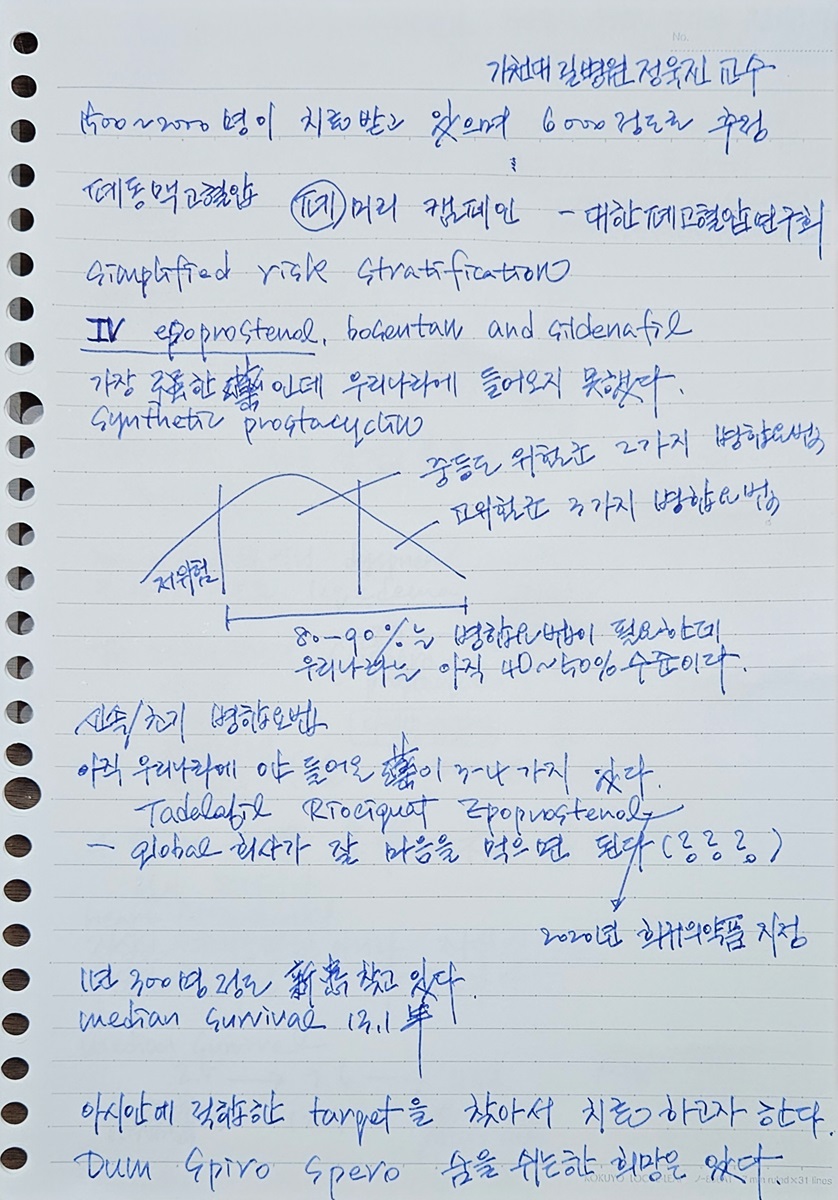 No.
가천대 길병원 정욱진 교수
1500~2000명이 치료받고 있으며 6000정도로 추정
폐동맥고혈압 폐미리 캠페인 - 대한폐고혈압연구회
simplified risk stratification
IV epoprostenol, bosentan and sildenafil
가장 강한 藥인데 우리나라에 들어오지 못했다.
synthetic prostacyclin
중등도 위험군 2가지 병합요법
고위험군 3가지 병합요법
저위험
80-90%는 병합요법이 필요한데
우리나라는 아직 40~50% 수준이다.
신속/초기 병합요법
아직 우리나라에 안 들어온 藥이 3-4가지 있다.
Tadalafil Riociguat Epoprostenol
- global 회사가 잘 마음을 먹으면 된다 (ㅎㅎㅎ)
2020년 희귀의약품 지정
1년 300명 정도 新患 찾고 있다.
median survival 13.1年
아시안에 적합한 target을 찾아서 치료하고자 한다.
Dum Spiro Spero 숨을 쉬는한 희망은 있다
KOKUYO LOOSE-LEAF 7 mm ruled×31 lines